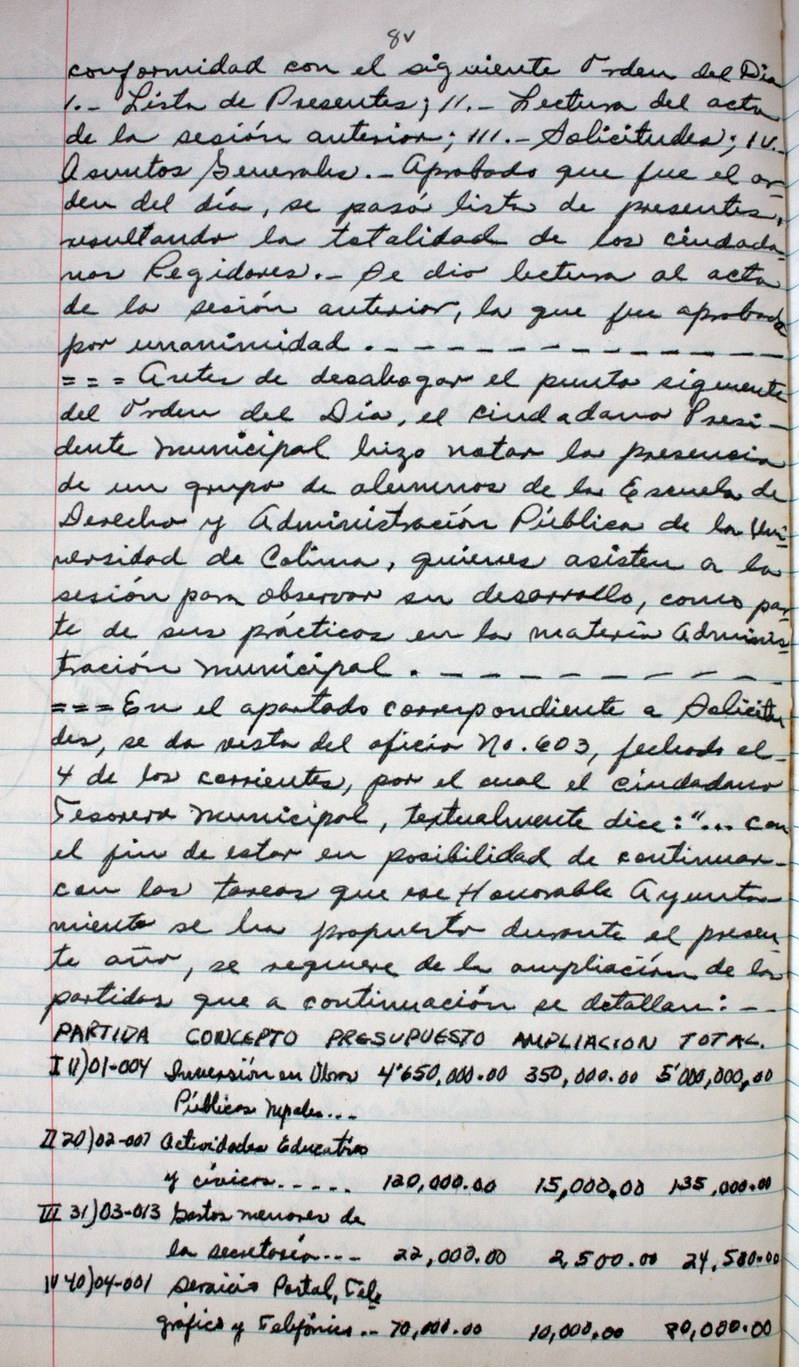 8v
conformidad con el siguiente Orden del Día
I.- Lista de Presentes; II.- Lectura del acta
de la sesión anterior; III.- Solicitudes; IV.-
Asuntos Generales.- Aprobado que fue el or-
den del día, se pasó lista de presentes,
resultando la totalidad de los ciudada-
nos Regidores.- Se dio lectura al acta
de la sesión anterior, la que fue aprobada
por unanimidad . - - - - - - - - - - - -
= = = Antes de desahogar el punto siguiente
del Orden del Día, el ciudadano Presi-
dente Municipal hizo notar la presencia
de un grupo de alumnos de la Escuela de
Derecho y Administración Pública de la Uni-
versidad de Colima, quienes asisten a la
sesión para observar su desarrollo, como par-
te de sus prácticas en la materia Adminis-
tración Municipal . - - - - - - - - - -
= = = En el apartado correspondiente a Solicitu
des, se da vista del oficio No. 603, fechado el-
4 de los corrientes, por el cual el ciudadano
Tesorero Municipal, textualmente dice: "... con
el fin de estar en posibilidad de continuar-
con las tareas que ese Honorable Ayunta-
miento se ha propuesto durante el presen-
te año, se requiere de la ampliación de las
partidas que a continuación se detallan: - -
PARTIDA CONCEPTO PRESUPUESTO AMPLIACION TOTAL.
I 11)01-004 Inversión en Obras 4'650,000.00 350,000.00 5'000,000.00
Públicas Mpales...
II 20)02-007 Actividades Educativas
y cívicas..... 120,000.00 15,000.00 135,000.00
III 31)03-013 Gastos menores de
la secretaría... 22,000.00 2,500.00 24,500.00
IV 40)04-001 Servicio Postal, Tele
gráfico y Telefónico.. 70,000.00 10,000.00 80,000.00